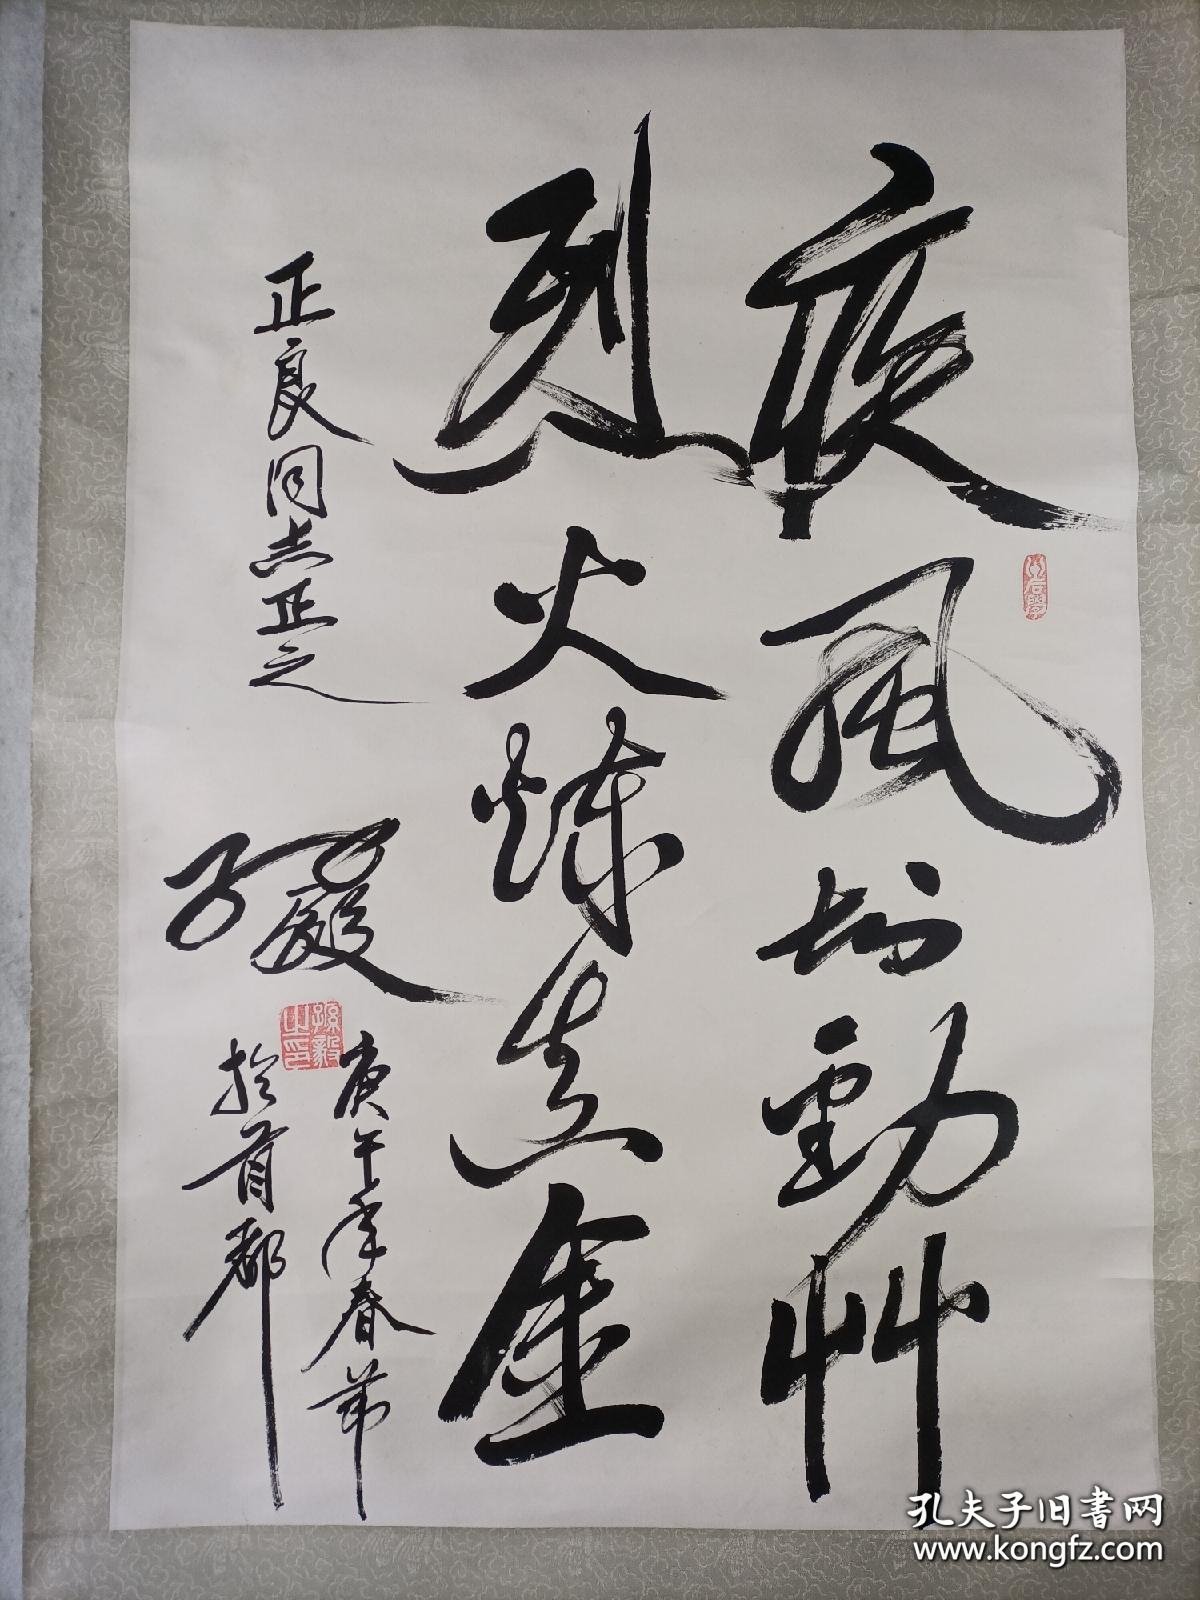 疾風知勁艸
烈火煉真金
正良同志正之
孫毅
庚午年春节
於首都
孫毅之印
孔夫子旧書网
www.kongfz.com